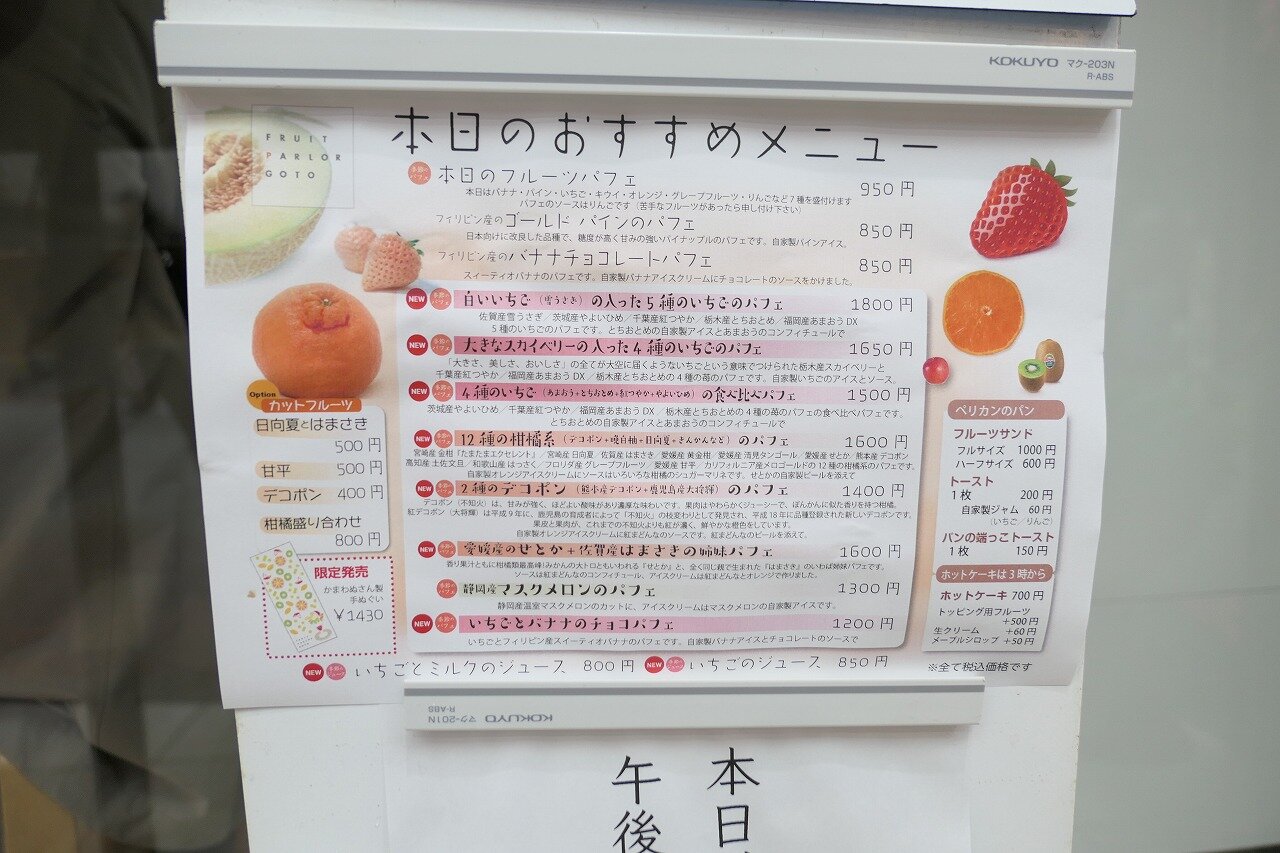 KOKUYO マク-203N
R-ABS
FRUIT
PARLOR
GOTO
本日のおすすめメニュー
季節のパフェ 本日のフルーツパフェ 950円
本日はバナナ・パイン・いちご・キウイ・オレンジ・グレープフルーツ・りんごなど7種を盛付けます
パフェのソースはりんごです（苦手なフルーツがあったら申し付け下さい）
フィリピン産のゴールド パインのパフェ 850円
日本向けに改良した品種で、糖度が高く甘みの強いパイナップルのパフェです。自家製パインアイス。
フィリピン産のバナナチョコレートパフェ 850円
スィーティオバナナのパフェです。自家製バナナアイスクリームにチョコレートのソースをかけました。
NEW 季節のパフェ 白いいちご（雪うさぎ）の入った5種のいちごのパフェ 1800円
佐賀産雪うさぎ／茨城産やよいひめ／千葉産紅つやか／栃木産とちおとめ／福岡産あまおうDX
5種のいちごのパフェです。とちおとめの自家製アイスとあまおうのコンフィチュールで
NEW 季節のパフェ 大きなスカイベリーの入った4種のいちごのパフェ 1650円
「大きさ、美しさ、おいしさ」の全てが大空に届くようないちごという意味でつけられた栃木産スカイベリーと
千葉産紅つやか／福岡産あまおうDX／栃木産とちおとめの4種の苺のパフェです。自家製いちごのアイスとソース。
NEW 季節のパフェ 4種のいちご（あまおう+とちおとめ+紅つやか+やよいひめ）の食べ比べパフェ 1500円
茨城産やよいひめ／千葉産紅つやか／福岡産あまおうDX／栃木産とちおとめの4種の苺のパフェの食べ比べパフェです。
とちおとめの自家製アイスとあまおうのコンフィチュールで
NEW 季節のパフェ 12種の柑橘系（デコポン+晩白柚+日向夏+きんかんなど）のパフェ 1600円
宮崎産 金柑「たまたまエクセレント」／宮崎産 日向夏／佐賀産 はまさき／愛媛産 黄金柑／愛媛産 清見タンゴール／愛媛産 せとか／熊本産 デコポン
高知産 土佐文旦／和歌山産 はっさく／フロリダ産 グレープフルーツ／愛媛産 甘平／カリフォルニア産メロゴールドの12種の柑橘系のパフェです。
自家製オレンジアイスクリームにソースはいろいろな柑橘のシュガーマリネです。せとかの自家製ピールを添えて
NEW 季節のパフェ 2種のデコポン（熊本産デコポン+鹿児島産大将輝）のパフェ 1400円
デコポン（不知火）は、甘みが強く、ほどよい酸味があり濃厚な味わいです。果肉はやわらかくジューシーで、ぽんかんに似た香りを持つ柑橘。
紅デコポン（大将輝）は平成9年に、鹿児島の育成者によって「不知火」の枝変わりとして発見され、平成18年に品種登録された新しいデコポンです。
果皮と果肉が、これまでの不知火よりも紅が濃く、鮮やかな橙色をしています。
自家製オレンジアイスクリームに紅まどんなのソースです。紅まどんなのピールを添えて。
NEW 季節のパフェ 愛媛産のせとか+佐賀産はまさきの姉妹パフェ 1600円
香り果汁ともに柑橘類最高峰！みかんの大トロともいわれる「せとか」と、全く同じ親で生まれた「はまさき」のいわば姉妹パフェです。
ソースは紅まどんなのコンフィチュール、アイスクリームは紅まどんなとオレンジで作りました。
季節のパフェ 静岡産マスクメロンのパフェ 1300円
静岡産温室マスクメロンのカットに、アイスクリームはマスクメロンの自家製アイスです。
NEW 季節のパフェ いちごとバナナのチョコパフェ 1200円
いちごとフィリピン産スイーティオバナナのパフェです。自家製バナナアイスとチョコレートのソースで
NEW いちごとミルクのジュース 800円 NEW いちごのジュース 850円
Option
カットフルーツ
日向夏とはまさき
500円
甘平 500円
デコポン 400円
柑橘盛り合わせ
800円
限定発売
かまわぬさん製
手ぬぐい
￥1430
ペリカンのパン
フルーツサンド
フルサイズ 1000円
ハーフサイズ 600円
トースト
1枚 200円
自家製ジャム 60円
（いちご／りんご）
パンの端っこトースト
1枚 150円
ホットケーキは3時から
ホットケーキ 700円
トッピング用フルーツ
+500円
生クリーム +60円
メープルシロップ +50円
※全て税込価格です
KOKUYO マク-201N
R-ABS
本日
午後